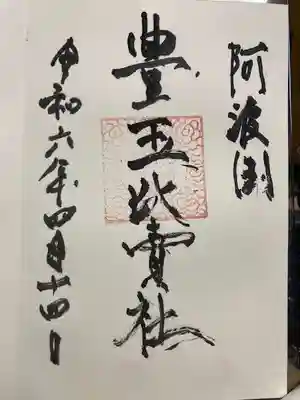 阿波國
豊玉比賣社
令和六年四月十四日